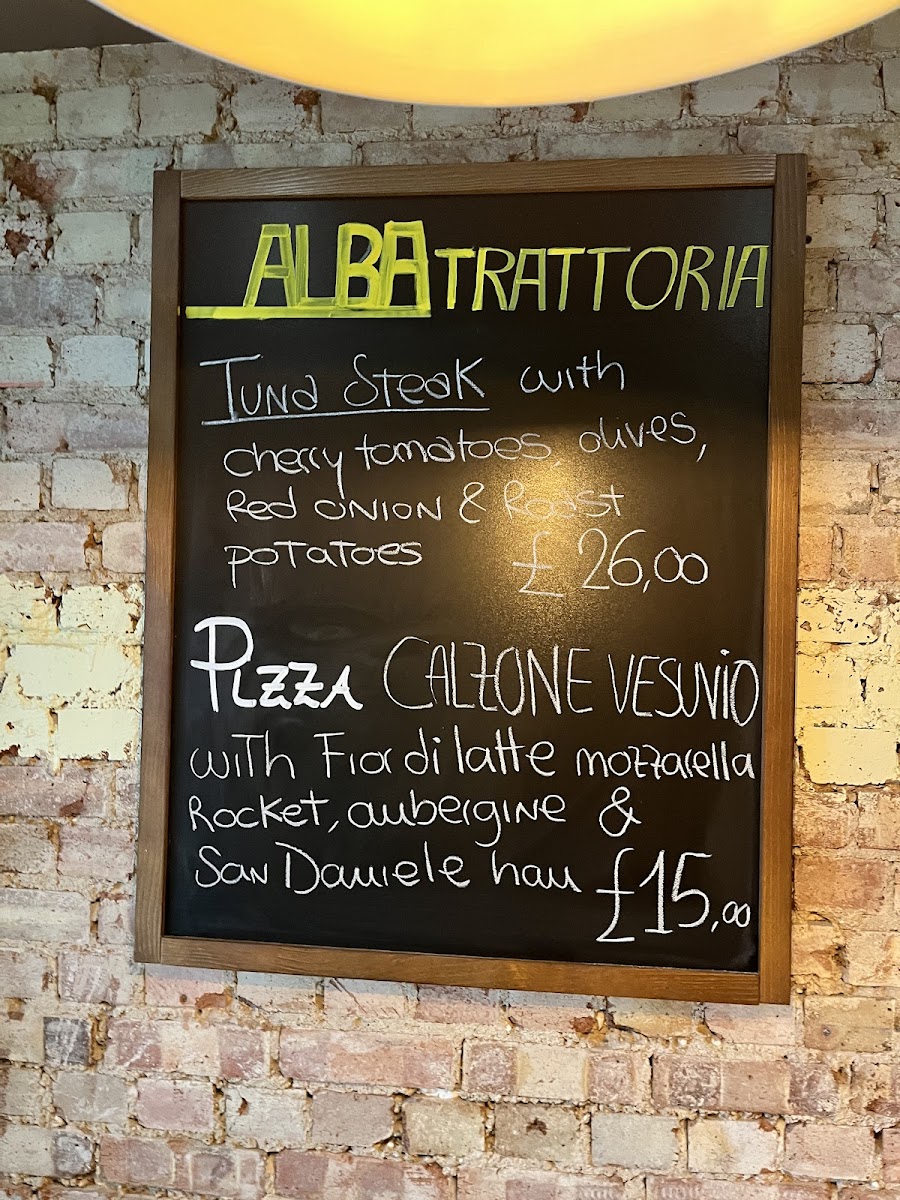 ALBA TRATTORIA
Tuna Steak with
cherry tomatoes, olives,
Red onion & Roast
potatoes £26,00
Pizza CALZONE VESUVIO
with Fior di latte mozzarella
Rocket, aubergine &
San Daniele ham £15,00